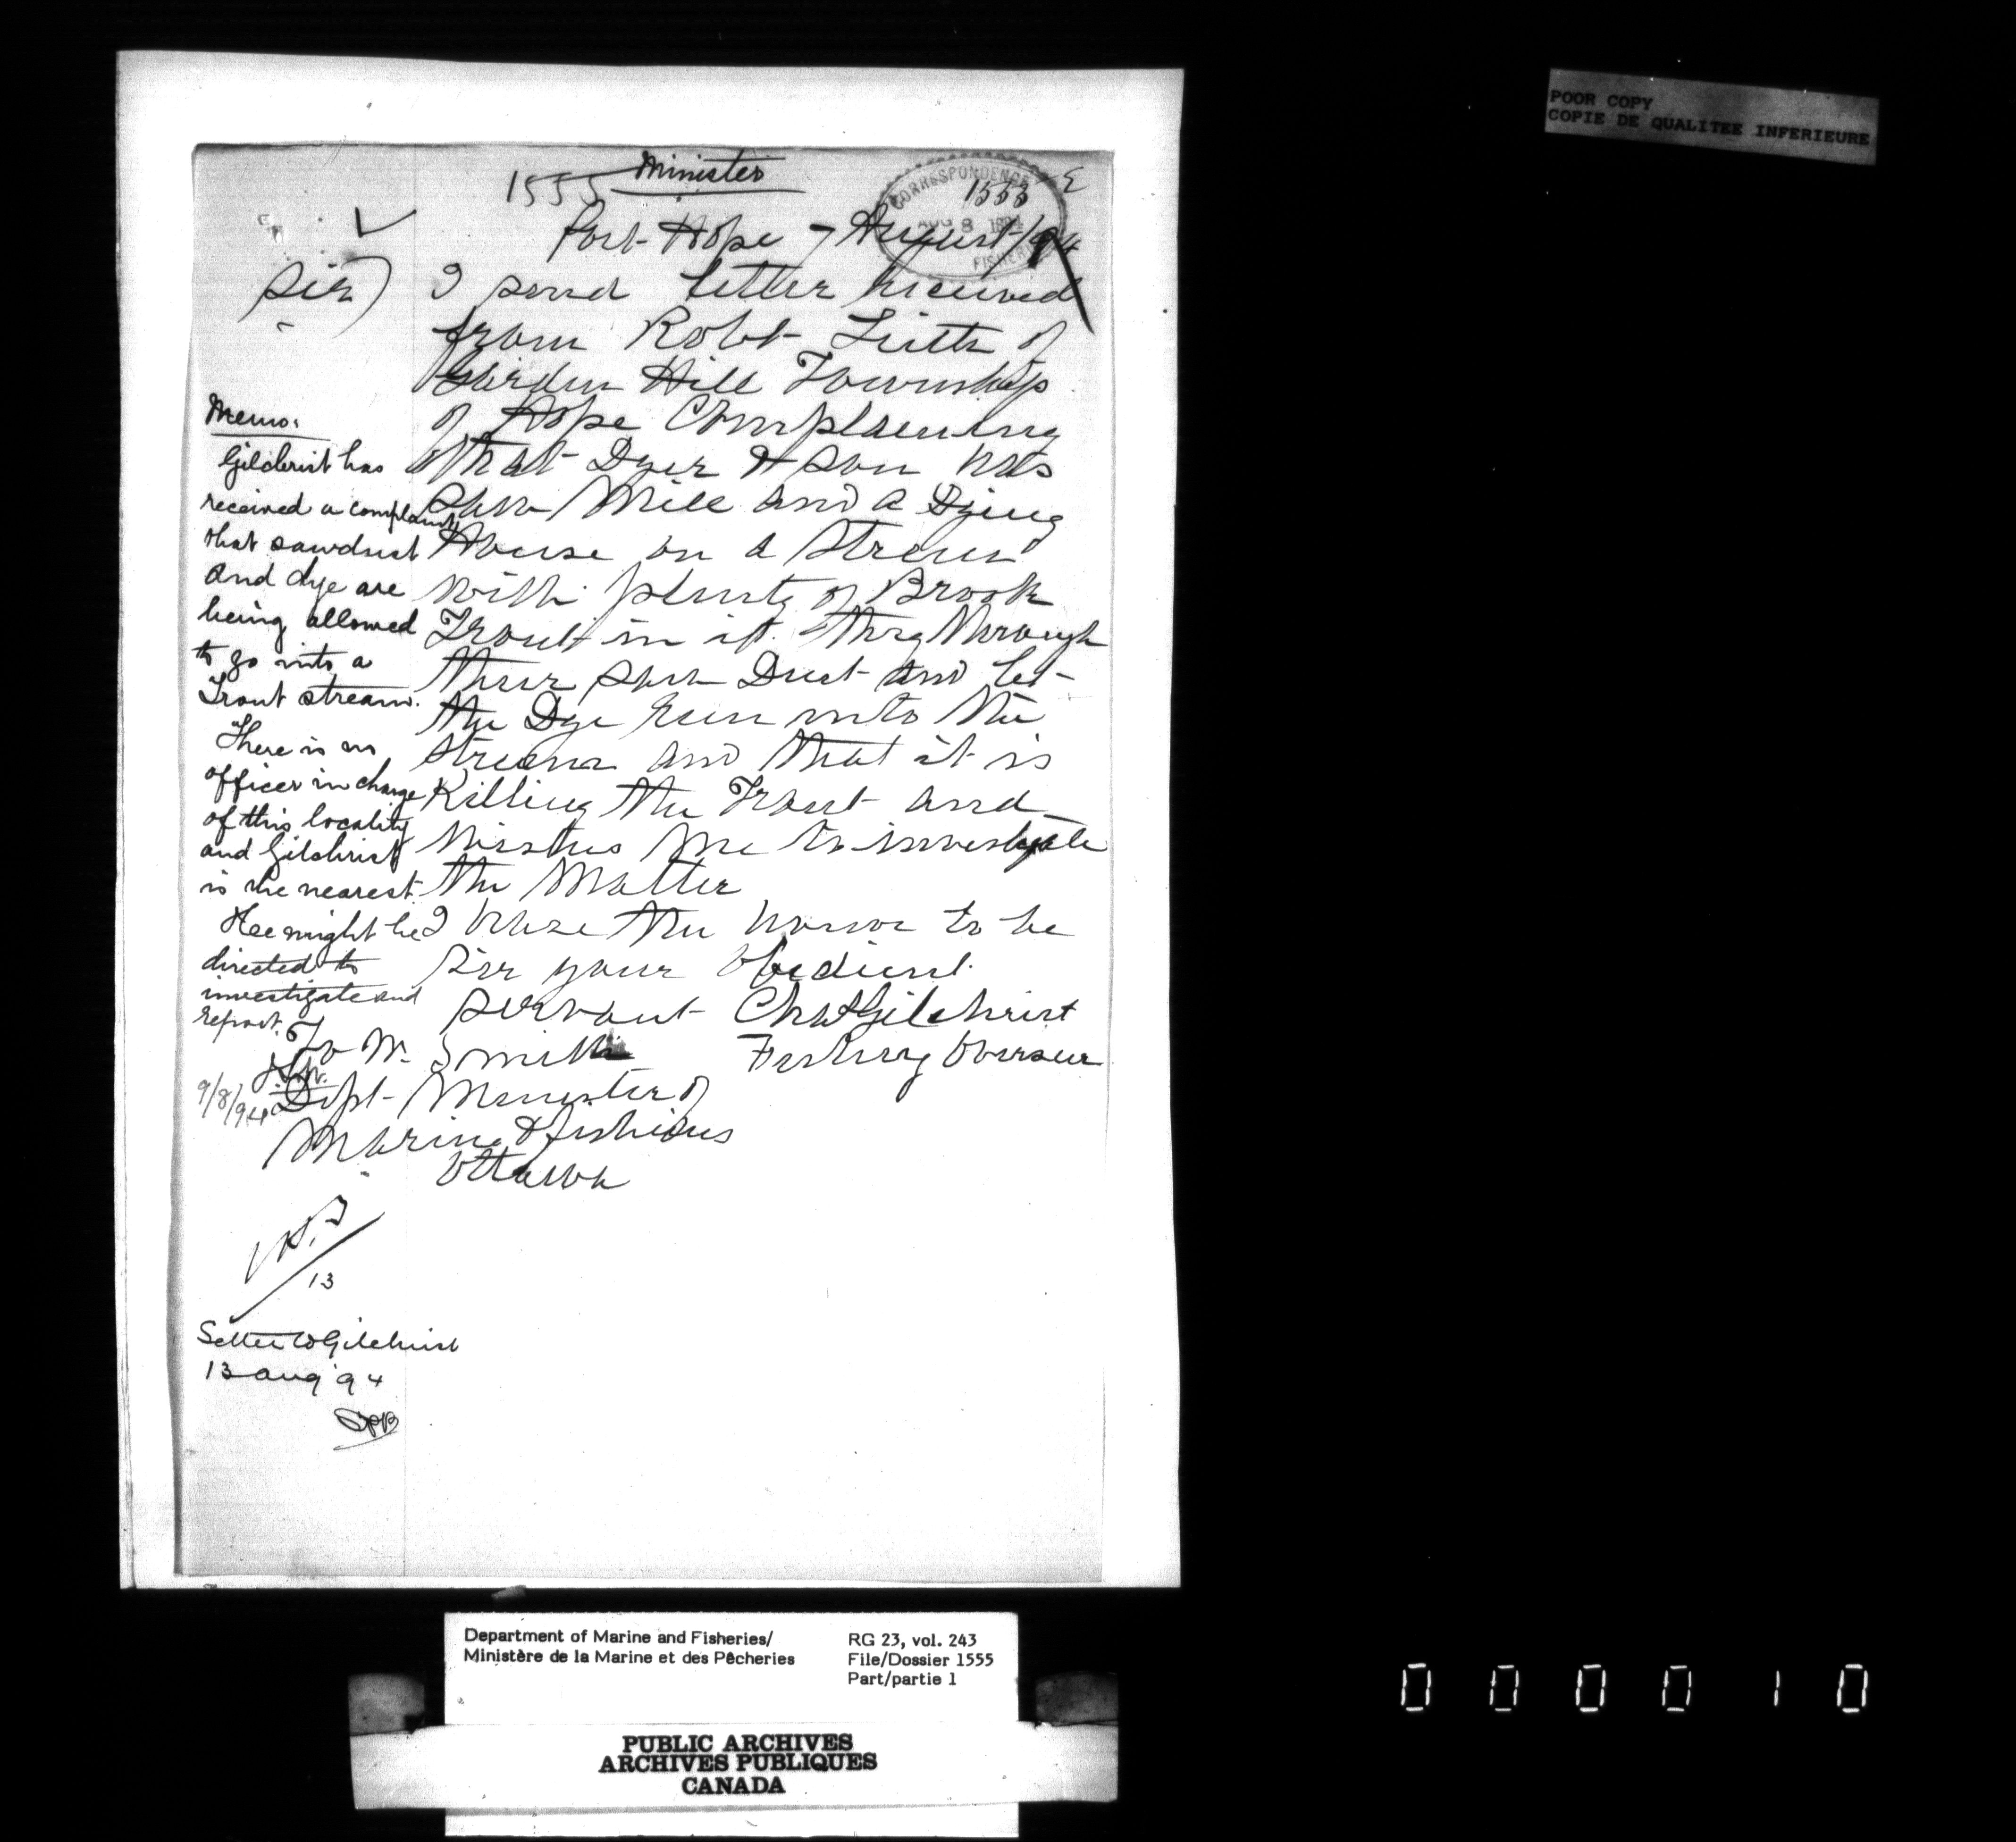 POOR COPY
COPIE DE QUALITEE INFERIEURE
1555 Minister
CORRESPONDENCE
1553
AUG 8 1894
FISHERIES
Port Hope 7 August/94
Sir) I send letter received
from Robt of
Garden Hill Township
of Hope Complaining
that Dyer & son has
Saw Mill and a Dying
House on a Stream
with plenty of Brook
Trout in it. they through
their saw Dust and let
the Dye run into the
stream and that it is
Killing the Trout and
wishes me to investigate
the Matter
I have the honor to be
Sir your Obedient
servant Chas Gilchrist
Fishery Overseer
To W. Smith
Dept Minister of
Marine & fisheries
Ottawa
Memo.
Gilchrist has
received a complaint
that sawdust
and dye are
being allowed
to go into a
Trout stream.
There is no
officer in charge
of this locality
and Gilchrist
is the nearest.
He might be
directed to
investigate and
report.
9/8/94
13
Letter to Gilchrist
13 aug 94
Department of Marine and Fisheries/
Ministère de la Marine et des Pêcheries
RG 23, vol. 243
File/Dossier 1555
Part/partie 1
PUBLIC ARCHIVES
ARCHIVES PUBLIQUES
CANADA
000010